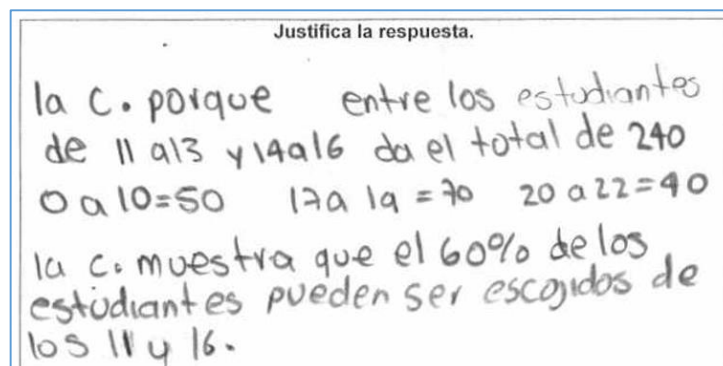 Justifica la respuesta.
la c. porque entre los estudiantes
de 11 a13 y 14a16 da el total de 240
0 a 10=50 17a 19 = 70 20 a 22=40
la c. muestra que el 60% de los
estudiantes pueden ser escojidos de
los 11 y 16.